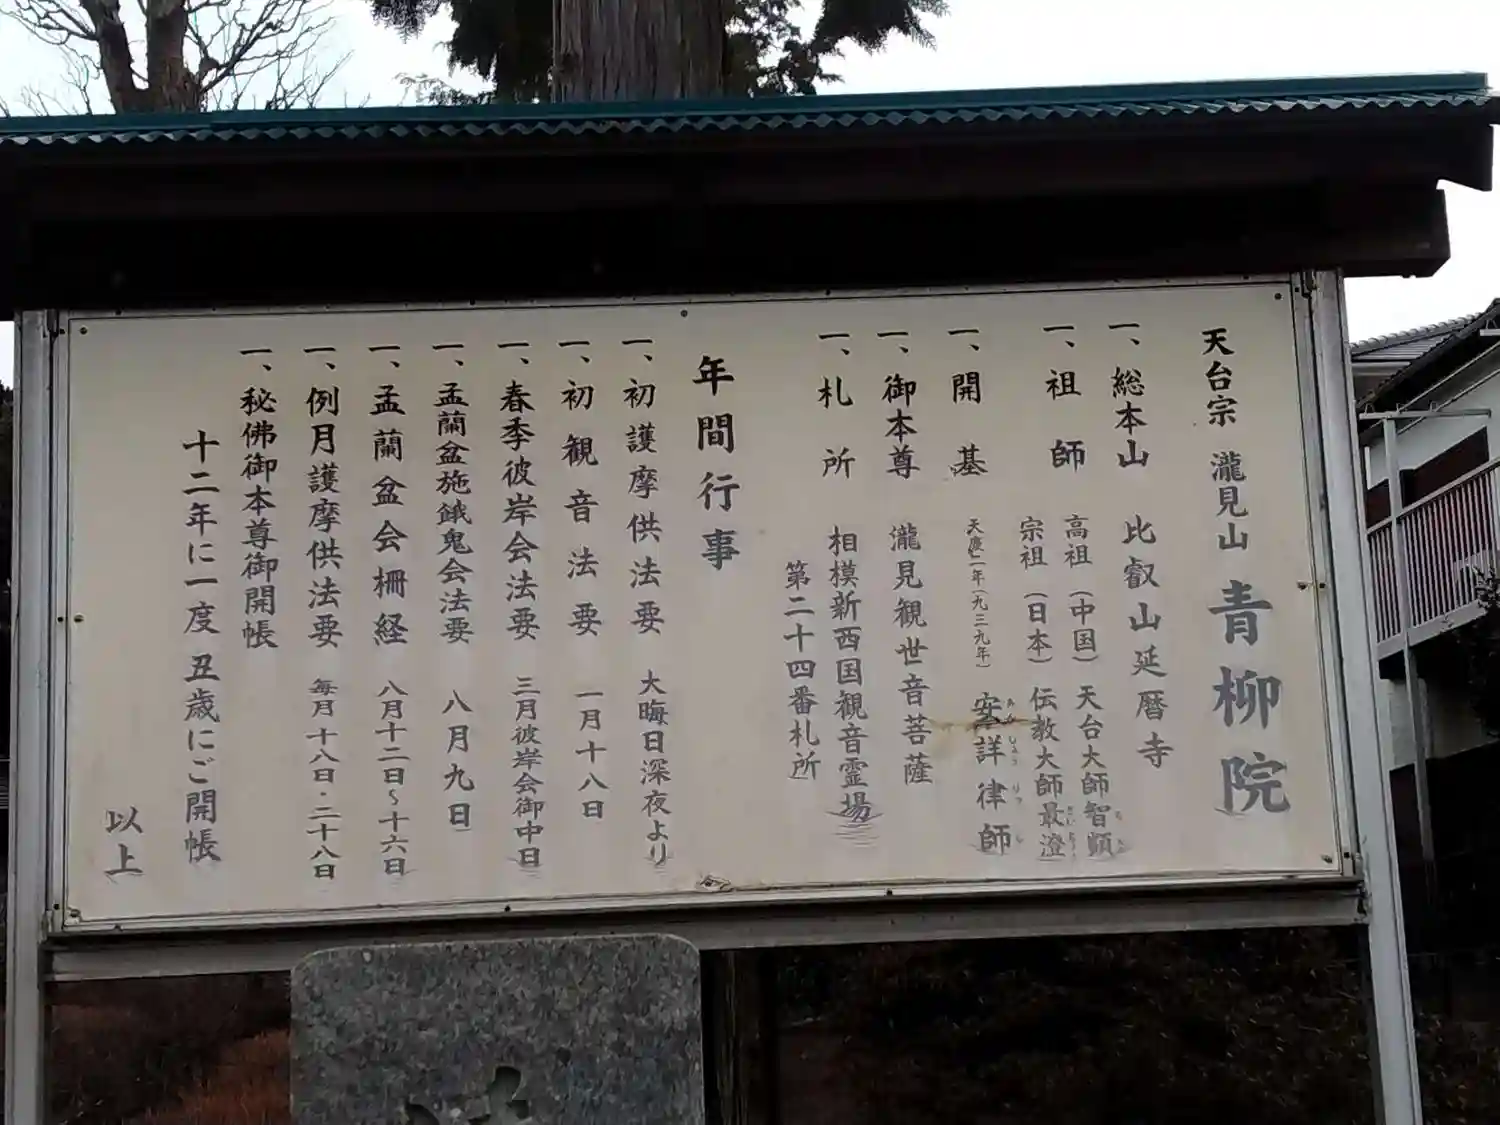 天台宗 瀧見山 青柳院
一、総本山 比叡山延暦寺
一、祖師 高祖(中国) 天台大師智顗
宗祖(日本) 伝教大師最澄
一、開基 天慶二年(九三九年) 安詳律師
一、御本尊 瀧見観世音菩薩
一、札所 相模新西国観音霊場
第二十四番札所
年間行事
一、初護摩供法要 大晦日深夜より
一、初観音法要 一月十八日
一、春季彼岸会法要 三月彼岸会御中日
一、盂蘭盆施餓鬼会法要 八月九日
一、盂蘭盆会棚経 八月十二日〜十六日
一、例月護摩供法要 毎月十八日・二十八日
一、秘佛御本尊御開帳
十二年に一度 丑歳にご開帳
以上